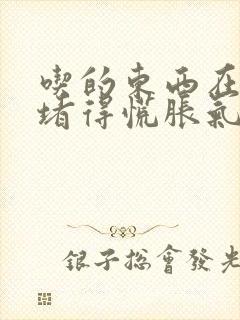 喫的東西在
堵得慌脹氣
銀子總會發光